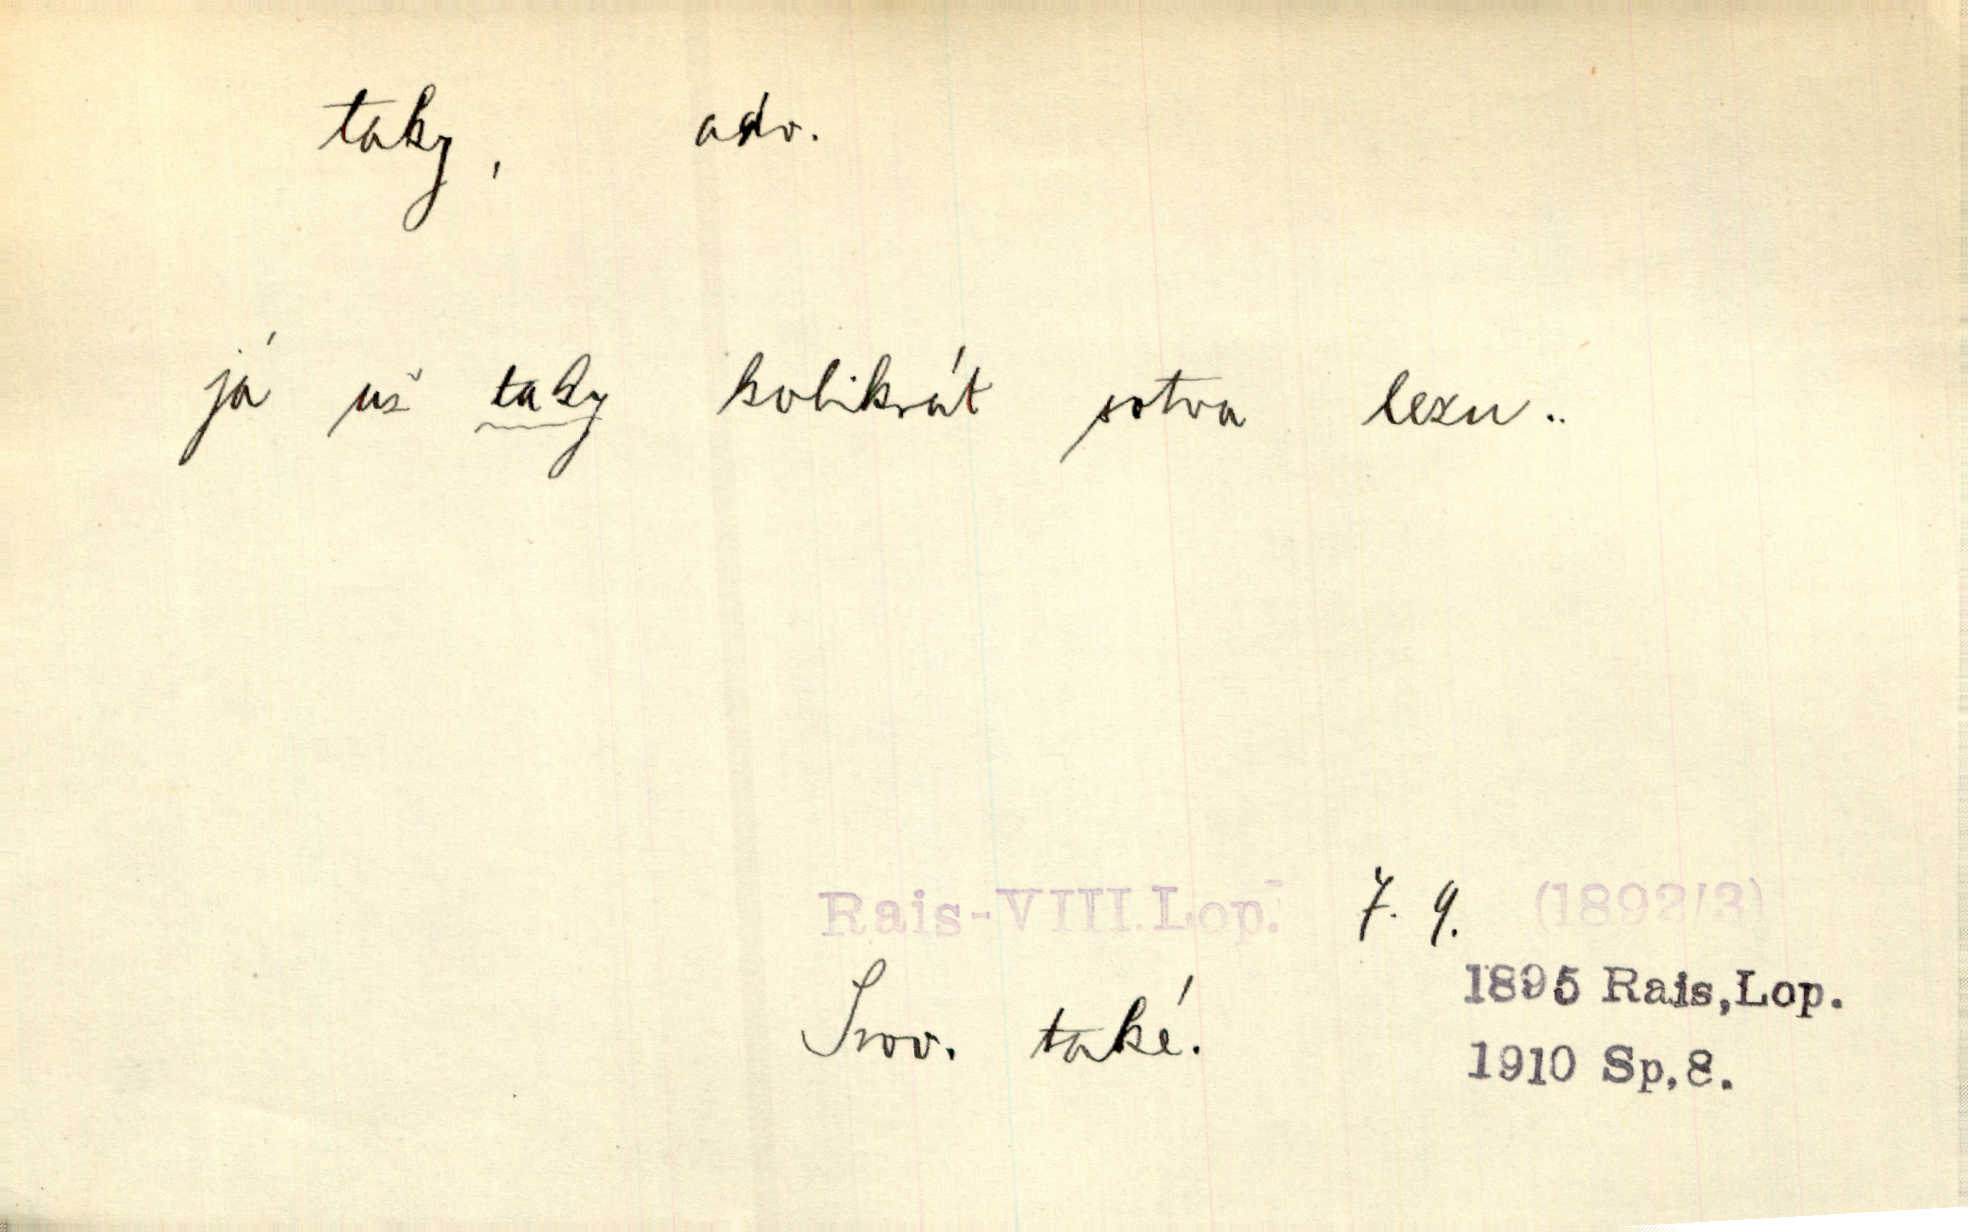 taky, adv.
já už taky kolikrát sotva lezu..
Rais-VIII.Lop. 7. 9. (1892/3)
1895 Rais,Lop.
Srov. také.
1910 Sp.8.